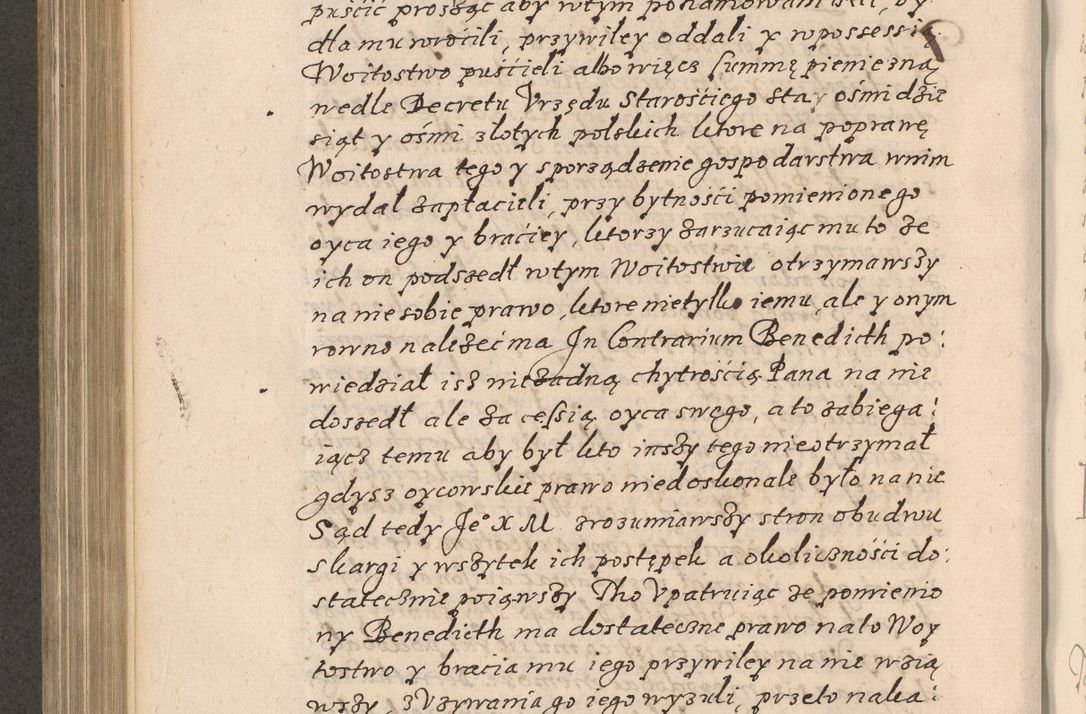 puścić prosząc aby wtym pohamowani beli, by
dła mu wrocili, przywiley oddali y w possessią
Woitostwo puścieli albo więcz summę pieniezną
wedle Decretu Vrzędu Starościego sta y ośmidzie
siąt y ośmi złotych polskich ktore na poprawę
Woitostwa tego y sporządzenie gospodarstwa wnim
wydał zapłacieli, przy bytności pomienionego
oyca iego y braciey, ktorzy zarzucaiąc mu to że
ich on podszedł wtym Woitostwie otrzymawszy
na nie sobie prawo, ktore nietylko iemu, ale y onym
rowno należeć ma In Contrarium Benedicth po:
wiedział isz nieżadną chytrością Pana na nie
doszedł ale za cessią oyca swego, a to zabiega:
iącz temu aby był kto inszy tego nieotrzymał
gdysz oycowskie prawo niedoskonałe było na nie
Sąd tedy Je° X M zrozumiawszy stron obudwu
skargi y wszytek ich postępek a okoliczności do:
statecznie poiąwszy Tho Vpatruiąc że pomienio
ny Benedicth ma dostateczne prawo na to Woy
tostwo y bracia mu iego przywiley na nie wzią
wszy, z Vzywania go iego wyzuli, przeto naka: